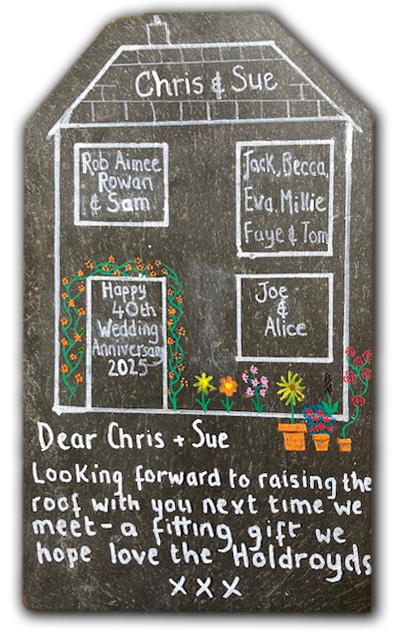 Chris & Sue
Rob Aimee
Rowan
& Sam
Jack, Becca,
Eva, Millie
Faye & Tom
Happy
40th
Wedding
Anniversary
2025
Joe
&
Alice
Dear Chris + Sue
Looking forward to raising the
roof with you next time we
meet - a fitting gift we
hope love the Holdroyds
x x x